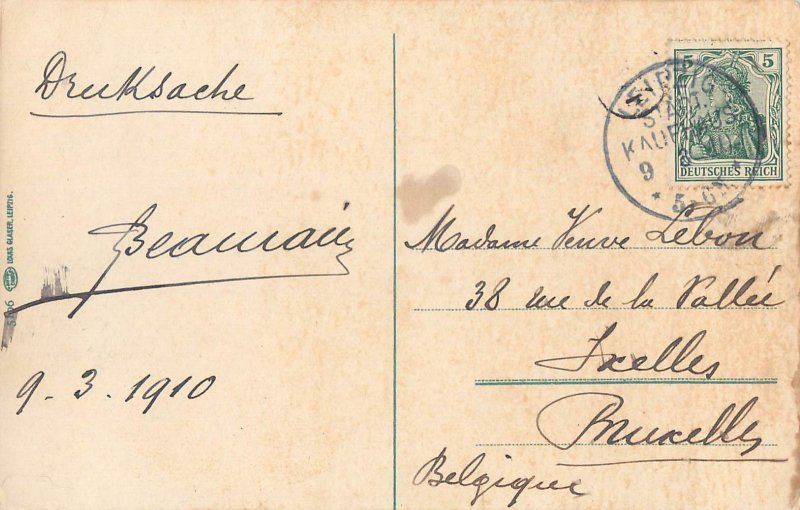 Drucksache
Beaumain
9. 3. 1910
LOUIS GLASER, LEIPZIG.
5
5
DEUTSCHES REICH
LEIPZIG
STÄDT.
KAUFHAUS
9
10
5-6N
Madame Veuve Lebon
38 rue de la Vallée
Ixelles
Bruxelles
Belgique